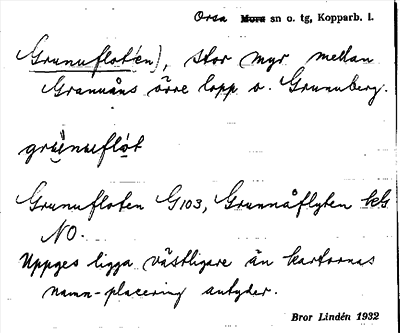 Orsa Mora sn o. tg, Kopparb. l.
Grunufloten), stor myr mellan
Grannåns övre lopp o. Grunuberg.
grùnuflót
Grunufloten G103, Grunnåflyten kls
NO.
Uppges ligga västligare än kartornas
namn-placering antyder.
Bror Lindén 1932